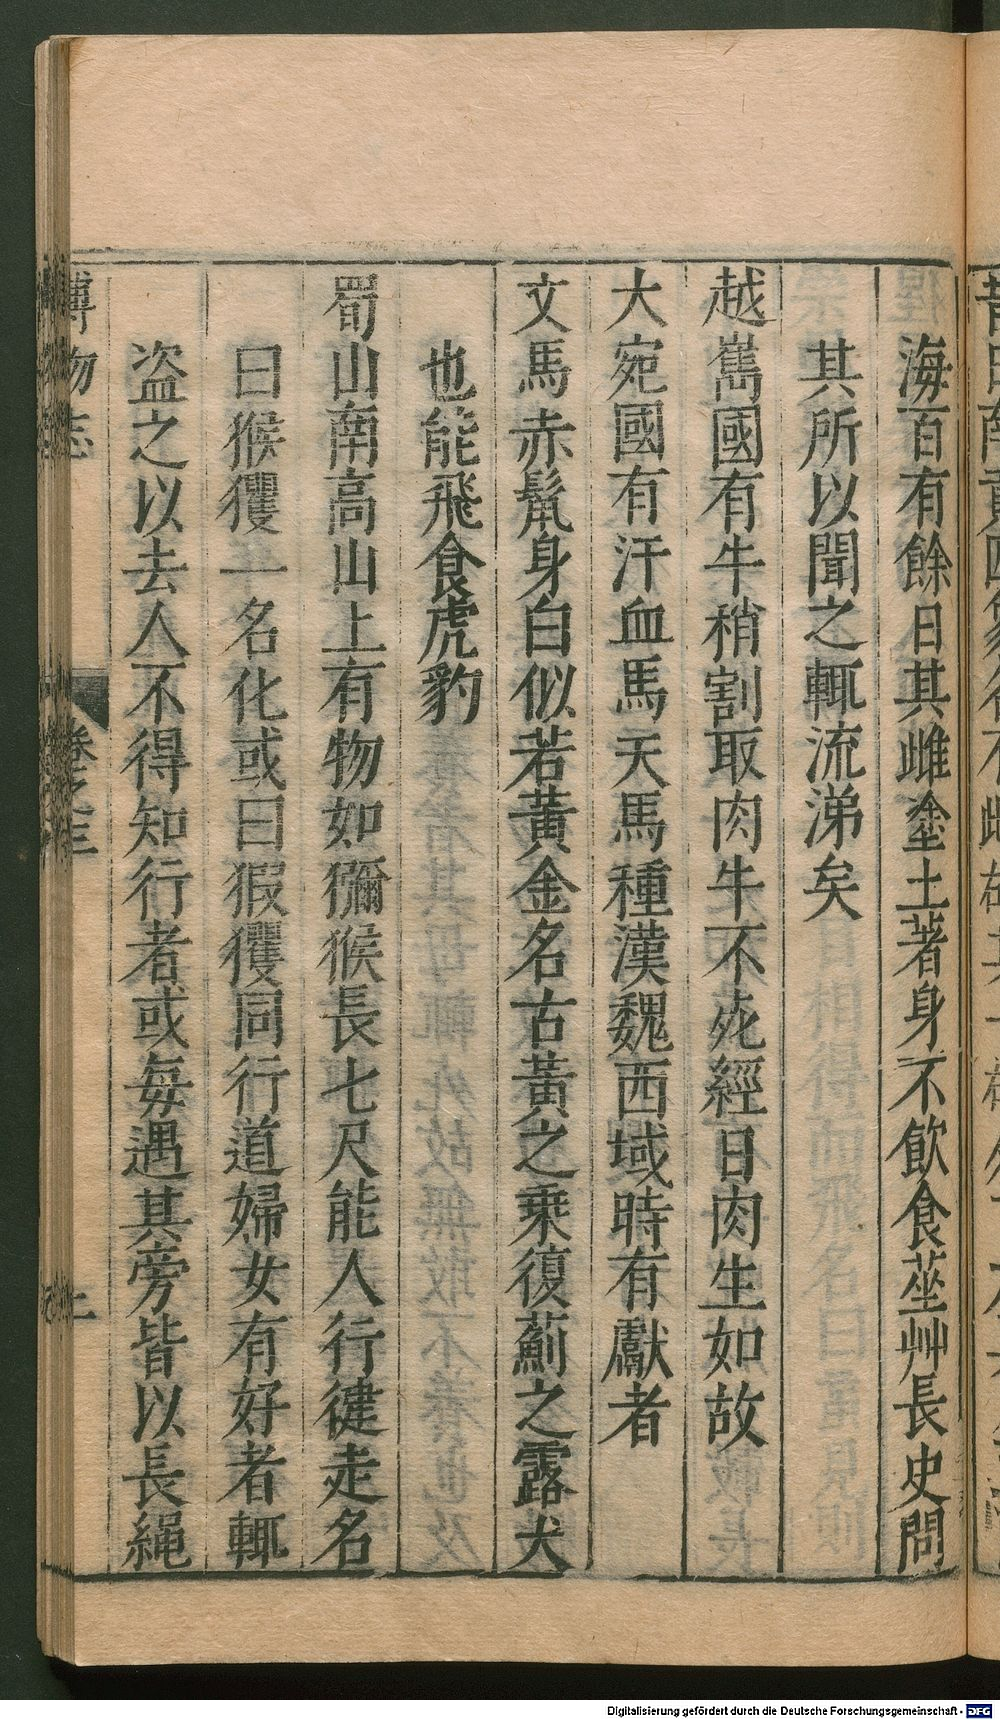 海百有餘日其雌塗土著身不飲食莝艸長史問
其所以聞之輒流涕矣
越嶲國有牛稍割取肉牛不死經日肉生如故
大宛國有汗血馬天馬種漢魏西域時有獻者
文馬赤鬛身白似若黃金名古黃之乗復薊之露犬
也能飛食虎豹
蜀山南高山上有物如獼猴長七尺能人行健走名
曰猴玃一名化或曰猳玃同行道婦女有好者輒
盜之以去人不得知行者或每遇其旁皆以長繩
博物志
卷之三
上
Digitalisierung gefördert durch die Deutsche Forschungsgemeinschaft - DFG